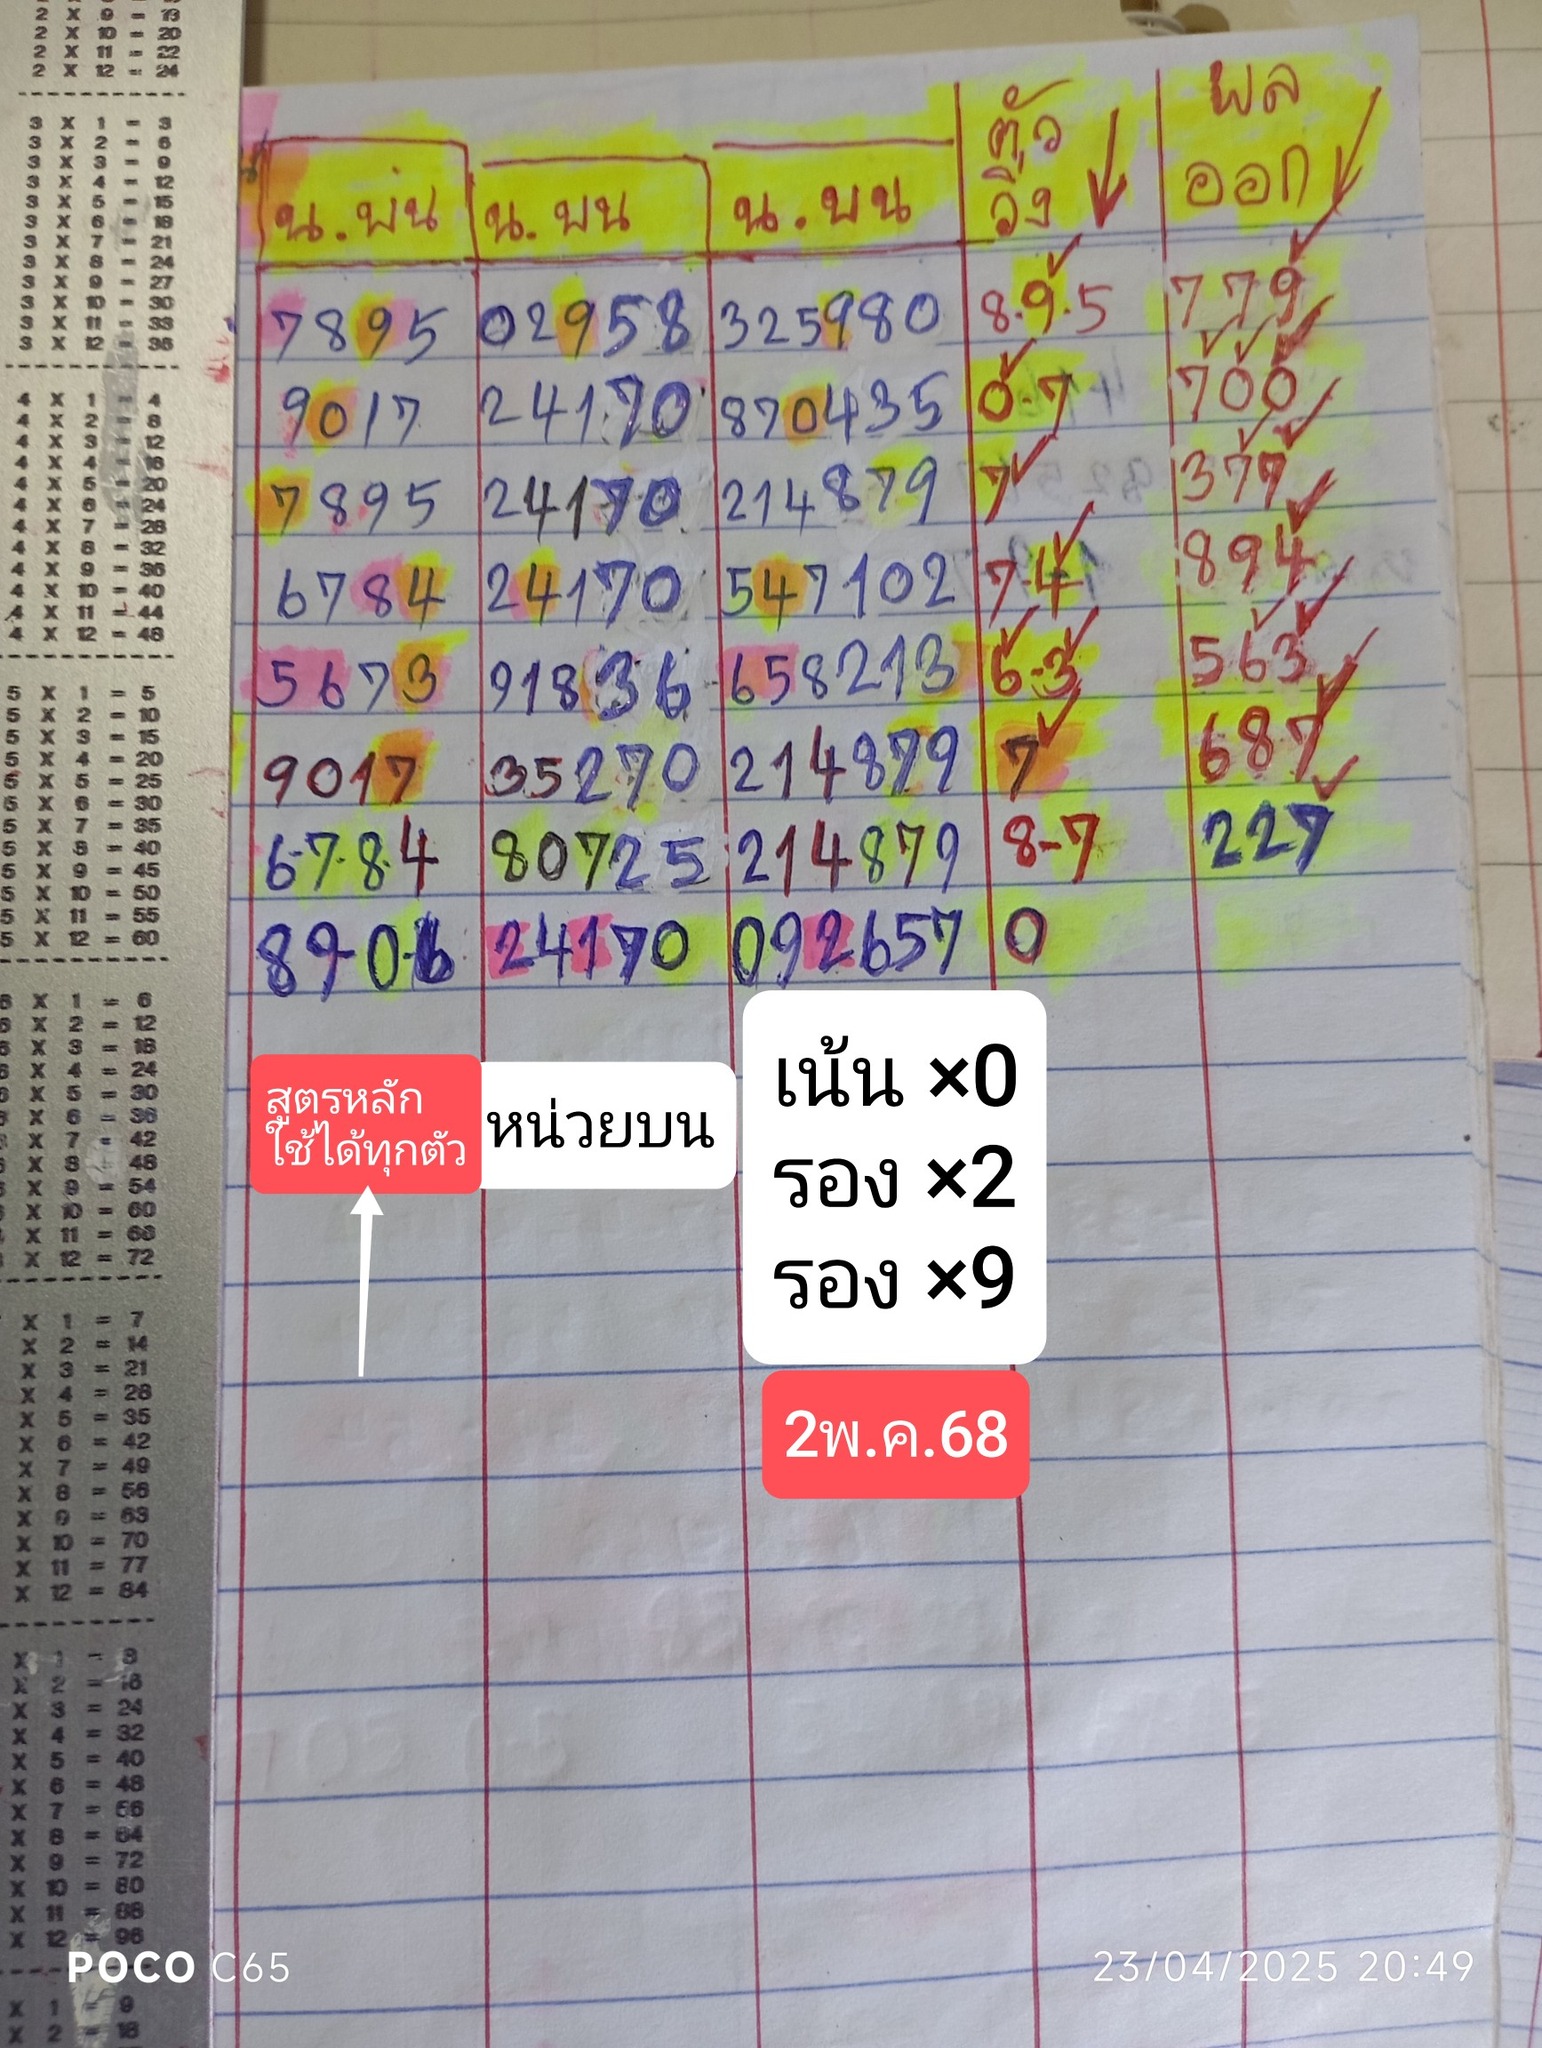 2 X 9 = 18
2 X 10 = 20
2 X 11 = 22
2 X 12 = 24
3 X 1 = 3
3 X 2 = 6
3 X 3 = 9
3 X 4 = 12
3 X 5 = 15
3 X 6 = 18
3 X 7 = 21
3 X 8 = 24
3 X 9 = 27
3 X 10 = 30
3 X 11 = 33
3 X 12 = 36
4 X 1 = 4
4 X 2 = 8
4 X 3 = 12
4 X 4 = 16
4 X 5 = 20
4 X 6 = 24
4 X 7 = 28
4 X 8 = 32
4 X 9 = 36
4 X 10 = 40
4 X 11 = 44
4 X 12 = 48
5 X 1 = 5
5 X 2 = 10
5 X 3 = 15
5 X 4 = 20
5 X 5 = 25
5 X 6 = 30
5 X 7 = 35
5 X 8 = 40
5 X 9 = 45
5 X 10 = 50
5 X 11 = 55
5 X 12 = 60
6 X 1 = 6
6 X 2 = 12
6 X 3 = 18
6 X 4 = 24
6 X 5 = 30
6 X 6 = 36
X 7 = 42
X 8 = 48
X 9 = 54
X 10 = 60
X 11 = 66
X 12 = 72
X 1 = 7
X 2 = 14
X 3 = 21
X 4 = 28
X 5 = 35
X 6 = 42
X 7 = 49
X 8 = 56
X 9 = 63
X 10 = 70
X 11 = 77
X 12 = 84
X 1 = 8
X 2 = 16
X 3 = 24
X 4 = 32
X 5 = 40
X 6 = 48
X 7 = 56
X 8 = 64
X 9 = 72
X 10 = 80
X 11 = 88
X 12 = 96
X 1 = 9
X 2 = 18
น.บน น.บน น.บน ตัววิ่ง ผลออก
7895 02958 325980 8.9.5 779
9017 24170 870435 0-7 700
7895 24170 214879 7 377
6784 24170 547102 7-4 894
5673 91836 658213 6-3 563
9017 35270 214879 7 687
6-7-8-4 80725 214879 8-7 227
89-0-6 24170 092657 0
สูตรหลัก
ใช้ได้ทุกตัว
หน่วยบน
เน้น ×0
รอง ×2
รอง ×9
2พ.ค.68
POCO C65
23/04/2025 20:49